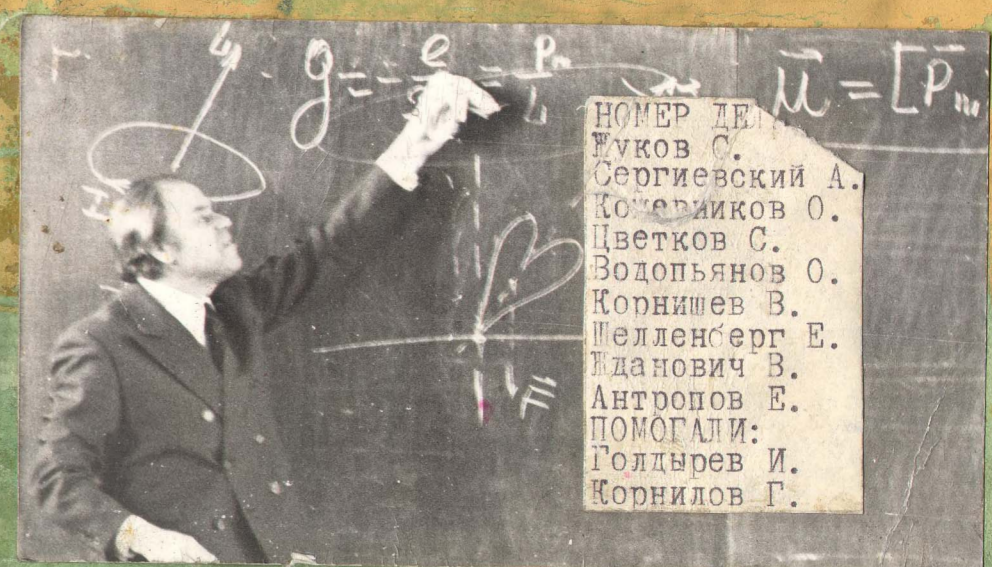 g = - e = Pm
L
μ = [Pm
НОМЕР ДЕ
Жуков С.
Сергиевский А.
Кожевников О.
Цветков С.
Водопьянов О.
Корнишев В.
Шелленберг Е.
Жданович В.
Антропов Е.
ПОМОГАЛИ:
Голдырев И.
Корнилов Г.